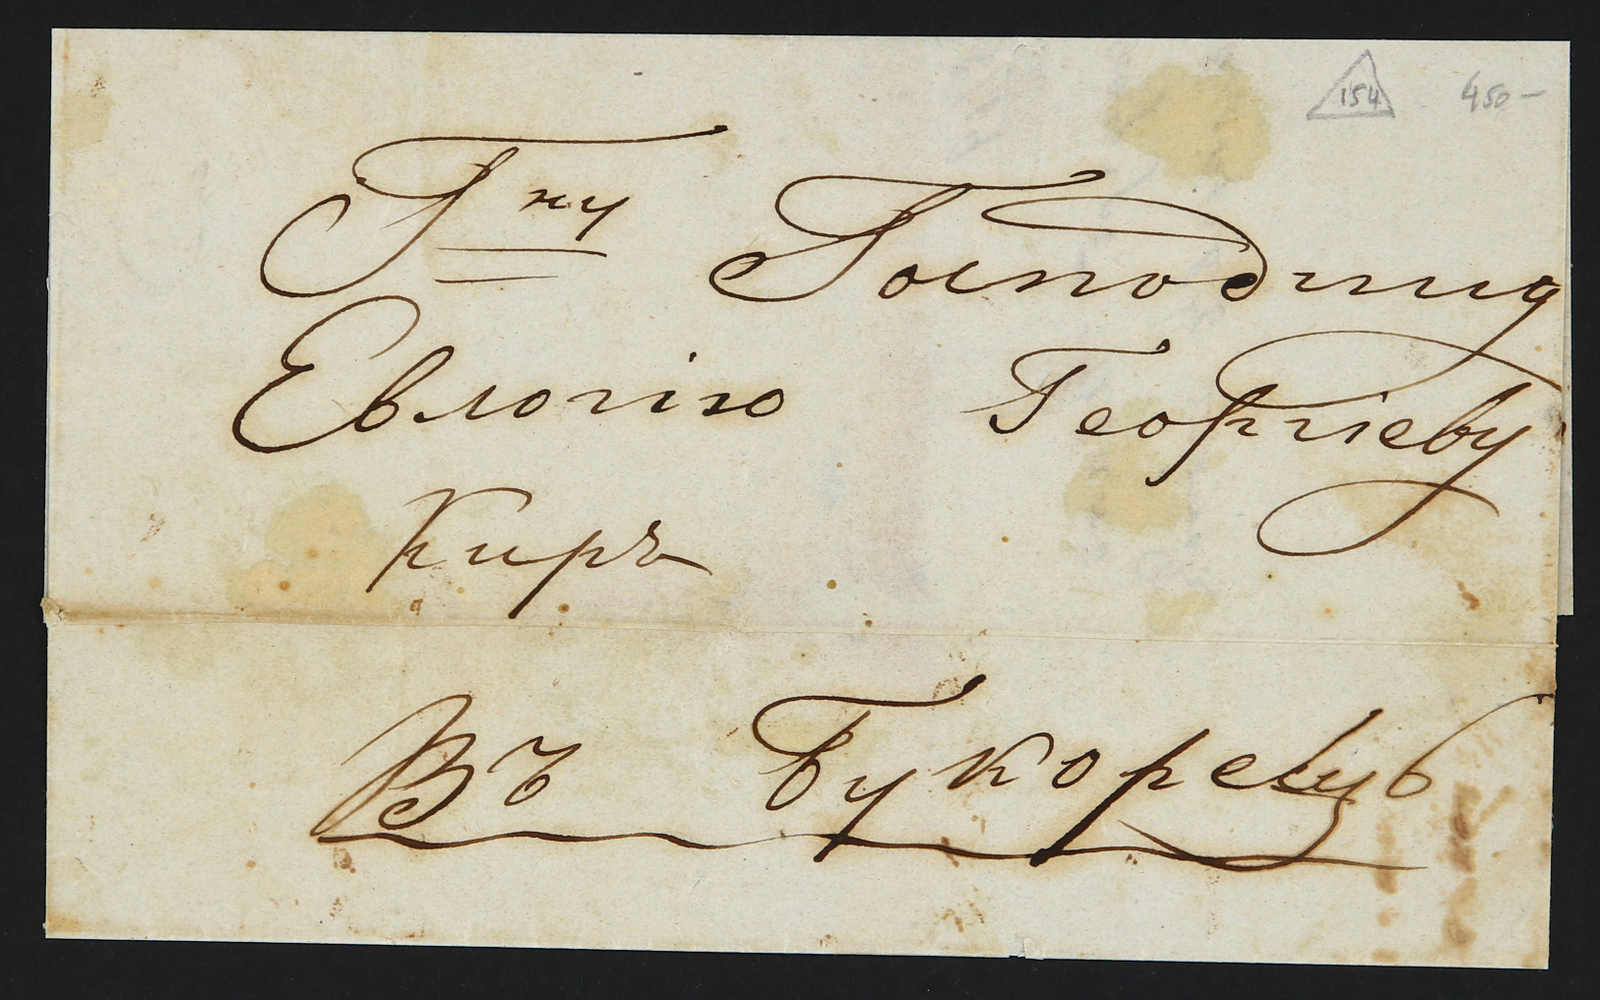 154 450—
Гну Господину
Евлогію Георгіеву
Киръ
Въ Букорещъ